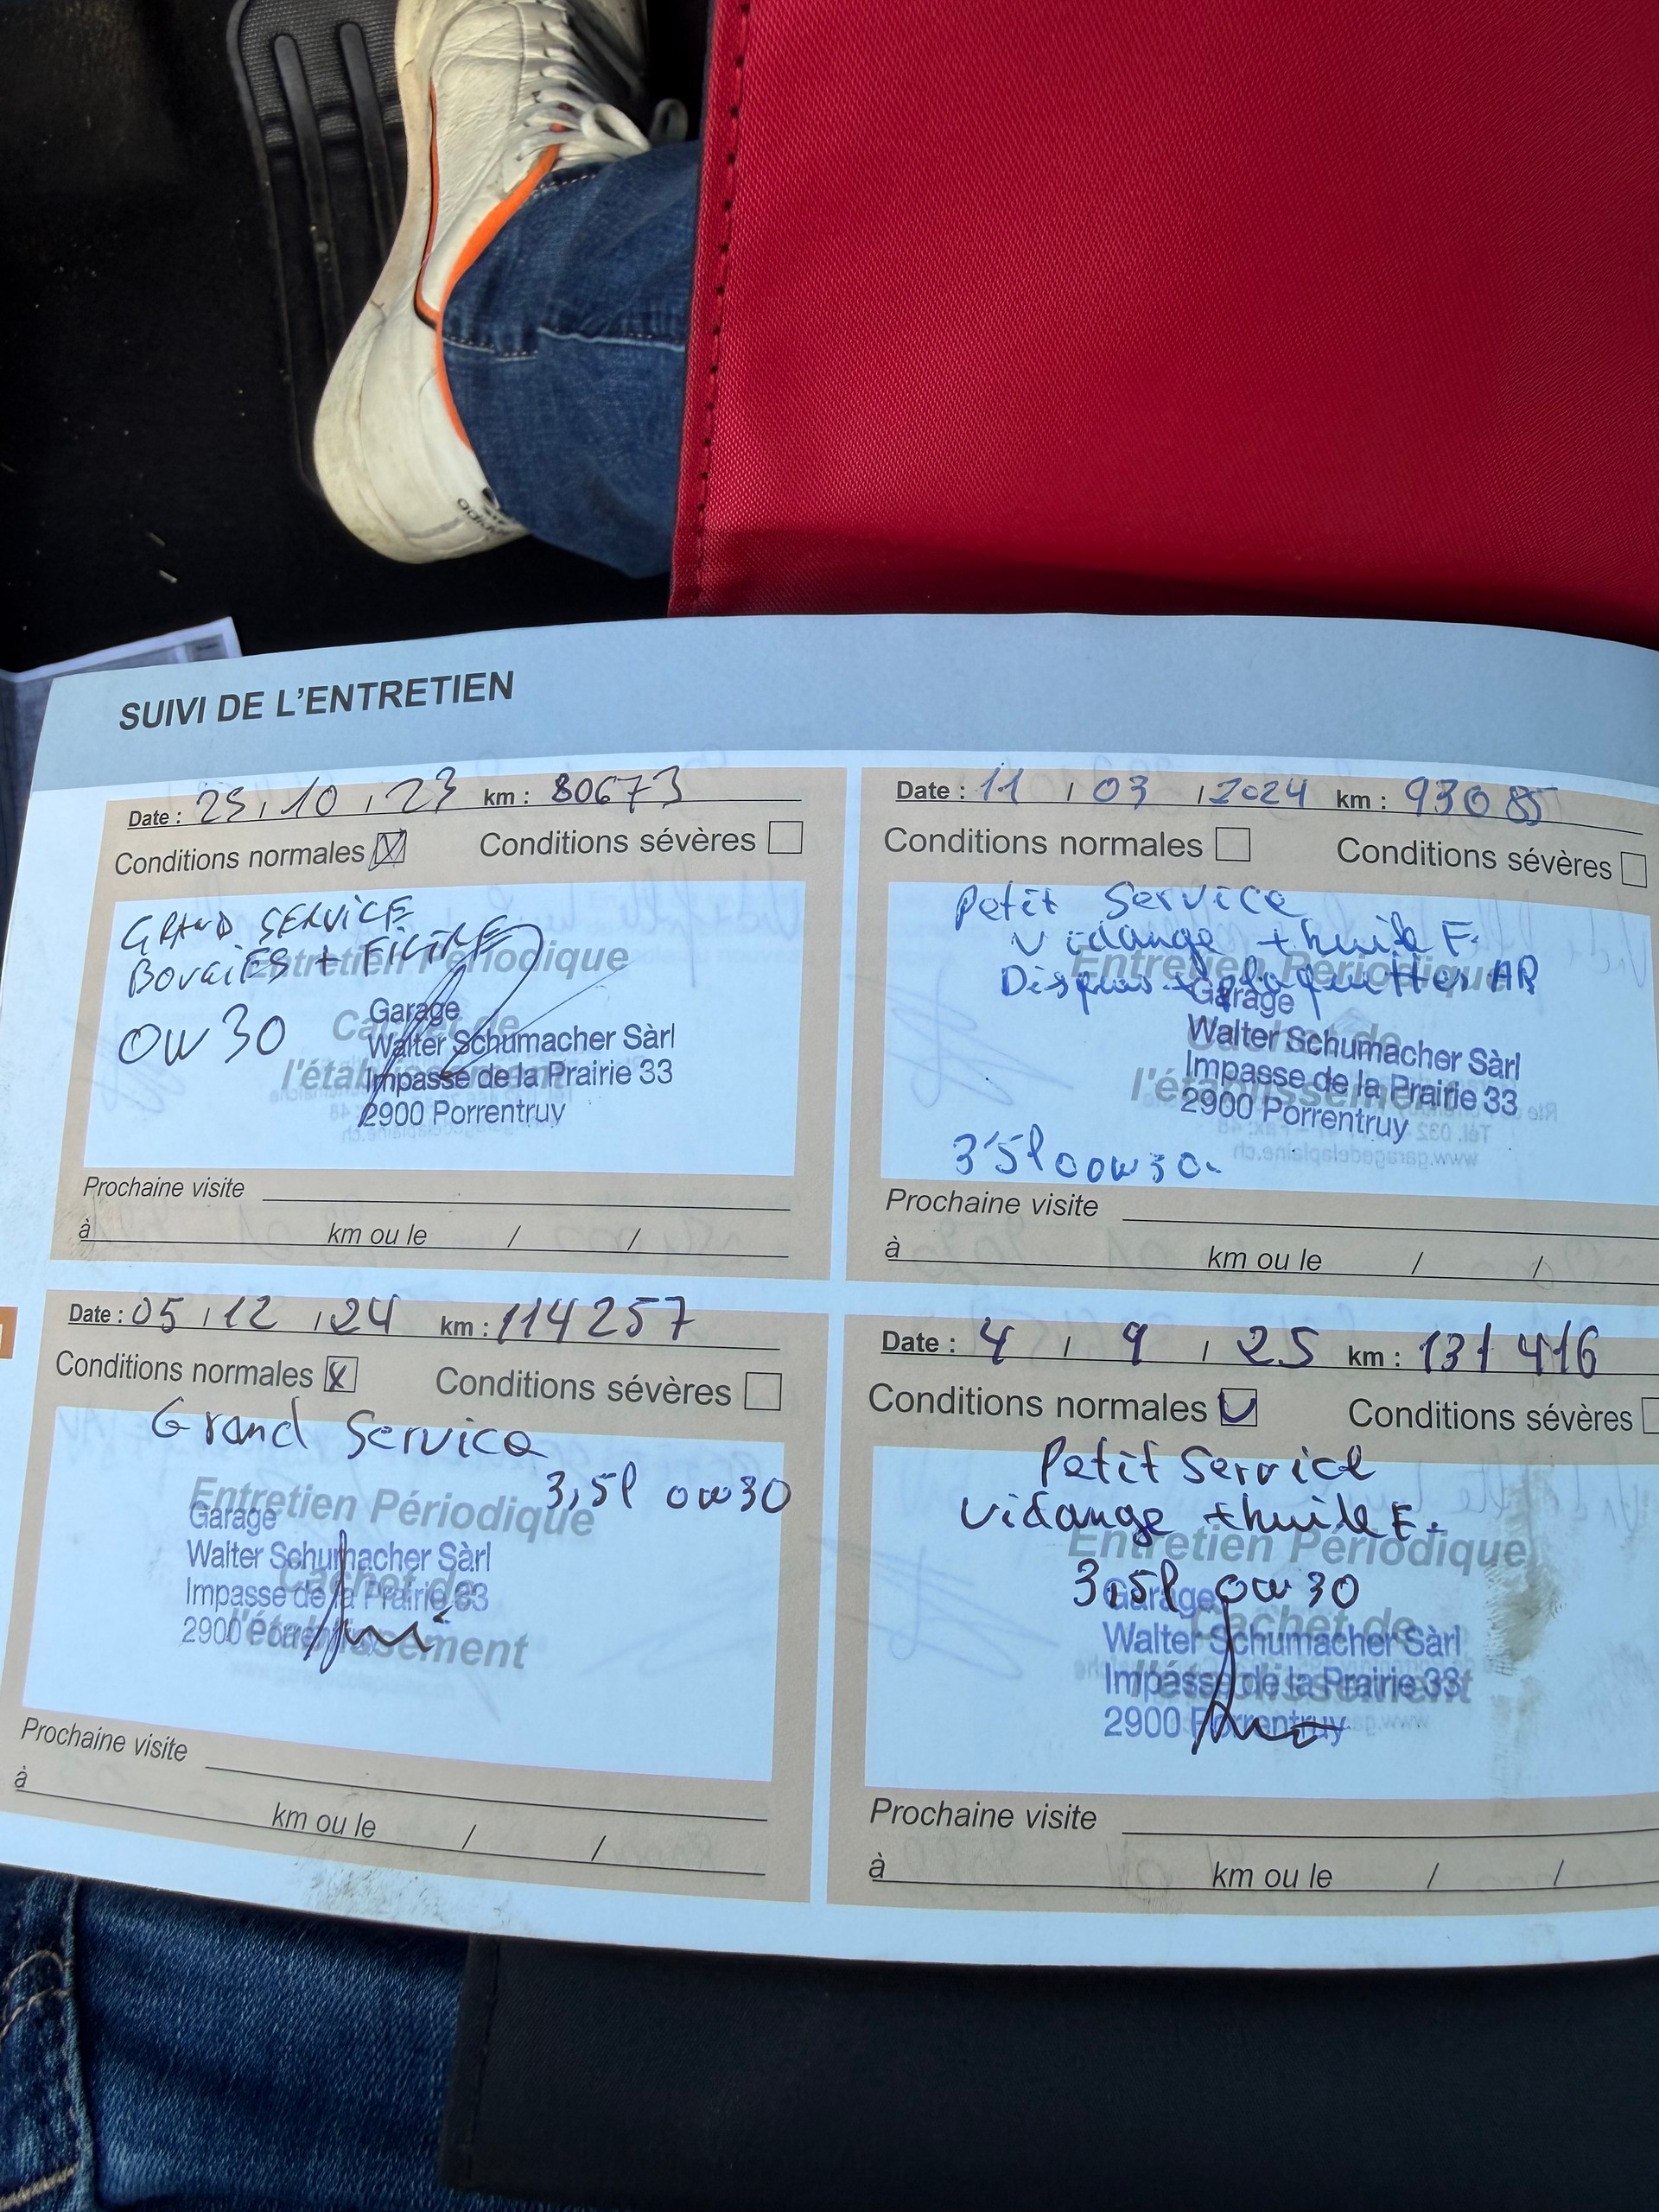 adidas
SUIVI DE L'ENTRETIEN
Date : 25 / 10 / 23 km : 80673
Conditions normales Conditions sévères
GRAND SERVICE
BOUGIES + FILTRE
OW 30
Entretien Périodique
Cachet de
l'établissement
Garage
Walter Schumacher Sàrl
Impasse de la Prairie 33
2900 Porrentruy
Prochaine visite
à km ou le / /
Date : 11 / 03 / 2024 km : 93085
Conditions normales Conditions sévères
Petit Service
Vidange + huile F.
Disques + plaquettes AR
Entretien Périodique
Cachet de
l'établissement
Garage
Walter Schumacher Sàrl
Impasse de la Prairie 33
2900 Porrentruy
3'5l 0ow30.
Prochaine visite
à km ou le / /
Date : 05 / 12 / 24 km : 114257
Conditions normales Conditions sévères
Grand Service
3,5l ow30
Entretien Périodique
Cachet de
l'établissement
Garage
Walter Schumacher Sàrl
Impasse de la Prairie 33
2900 Porrentruy
Prochaine visite
à km ou le / /
Date : 4 / 9 / 25 km : 131416
Conditions normales Conditions sévères
Petit Service
Vidange + huile F.
3,5l ow30
Entretien Périodique
Cachet de
l'établissement
Garage
Walter Schumacher Sàrl
Impasse de la Prairie 33
2900 Porrentruy
Prochaine visite
à km ou le / /